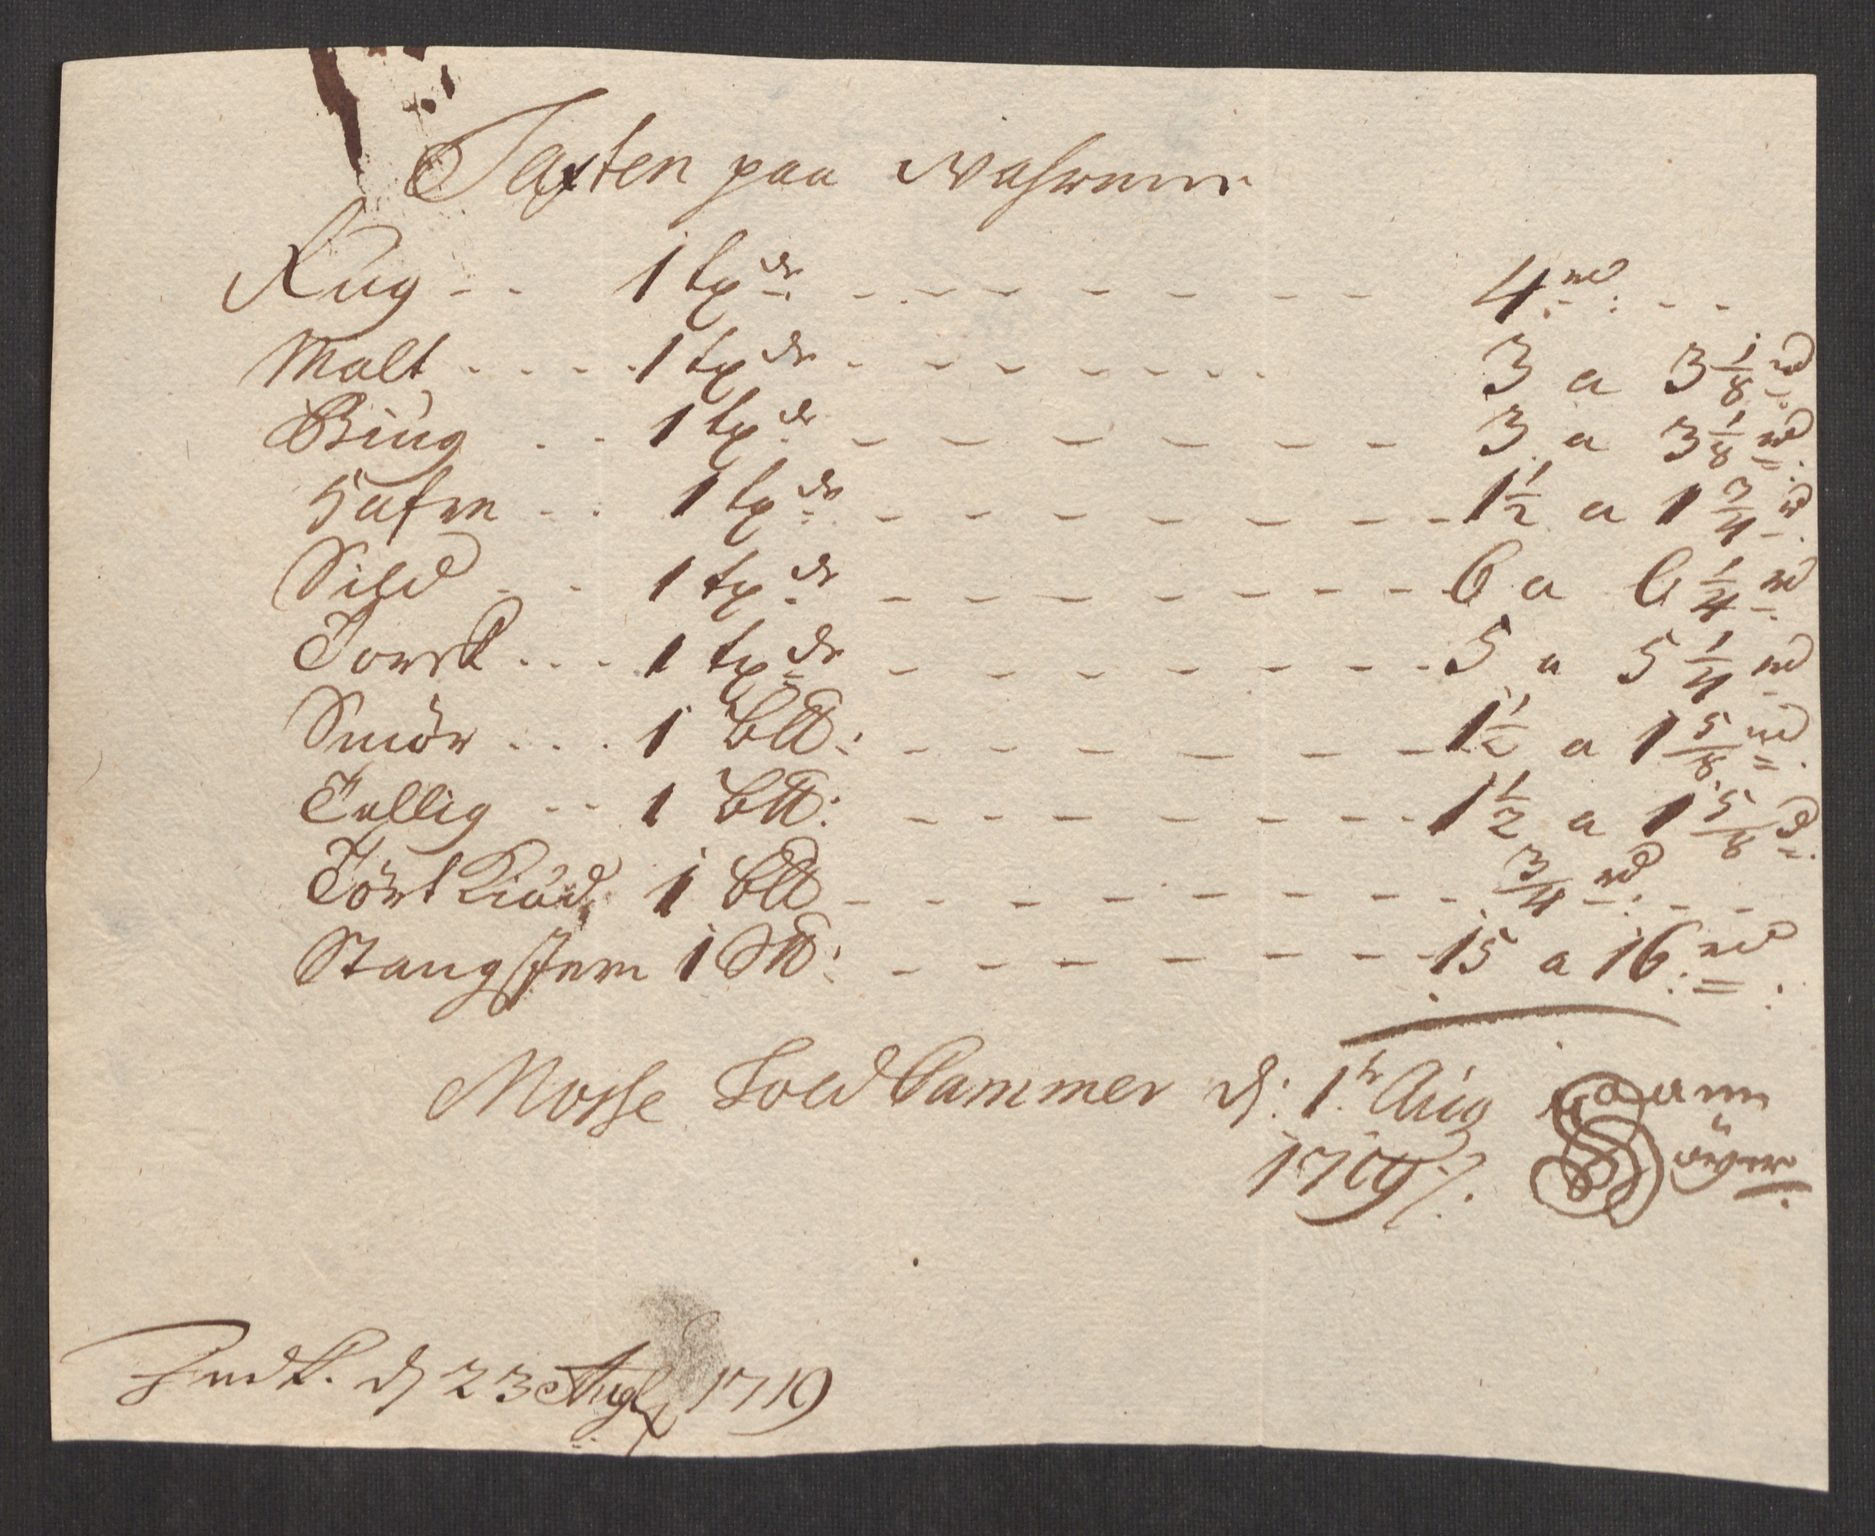 Taxten paa wahrerne
Rug - - 1 tp dr - - - - - - - - 4 rd - -
Malt - - - - 1 tp dr - - - - - - - - 3 a 3 1/8 rd
Biug - - 1 tp dr - - - - - - - - 3 a 3 1/8 rd
Hafre - - 1 tp dr - - - - - - - - 1 1/2 a 1 3/4 rd
Sild - - 1 tp dr - - - - - - - - 6 a 6 1/4 rd
Torsk - - - 1 tp dr - - - - - - - - 5 a 5 1/4 rd
Smör - - - 1 b℔: - - - - - - - - 1 1/2 a 1 5/8 rd
Tallig - - 1 b℔: - - - - - - - - 1 1/2 a 1 5/8 rd
Tört Kiöd 1 b℔ - - - - - - - - 3/4 rd - -
Stangjern 1 S℔: - - - - - - - - 15 a 16 rd
Mosse Told Cammer d: 1t Aug
1719
Indk. d 23 Augl 1719